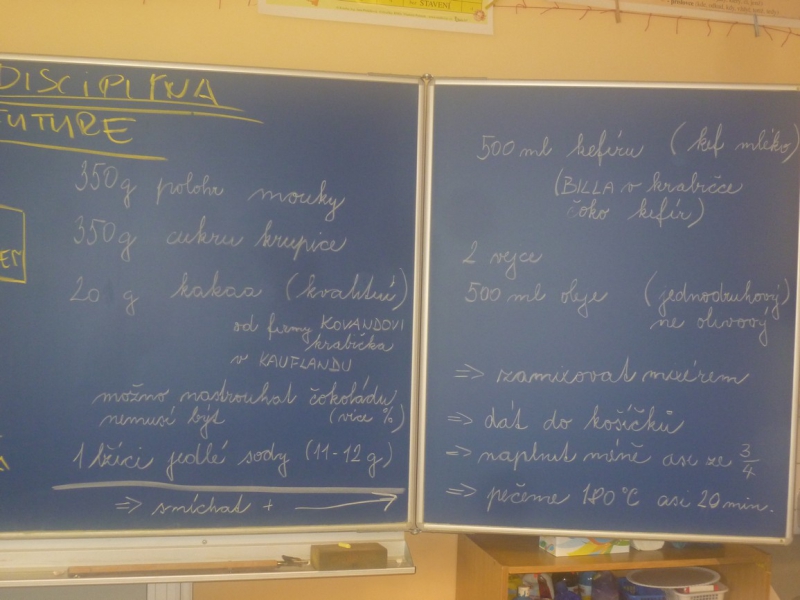 STAVENÍ
DISCIPLÍNA
FUTURE
350g polohr mouky
350g cukru krupice
20 g kakaa (kvalitní)
od firmy KOVANDOVI
krabička
v KAUFLANDU
možno nastrouhat čokoládu
nemusí být (více %)
1 lžíci jedlé sody (11-12 g)
=> smíchat + →
500 ml kefíru (kef mléko)
(BILLA v krabičce
čoko kefír)
2 vejce
500 ml oleje (jednodruhový)
ne olivový
=> rozmixovat mixérem
=> dát do košíčků
=> naplnit méně asi ze 3/4
=> pečeme 180°C asi 20 min.